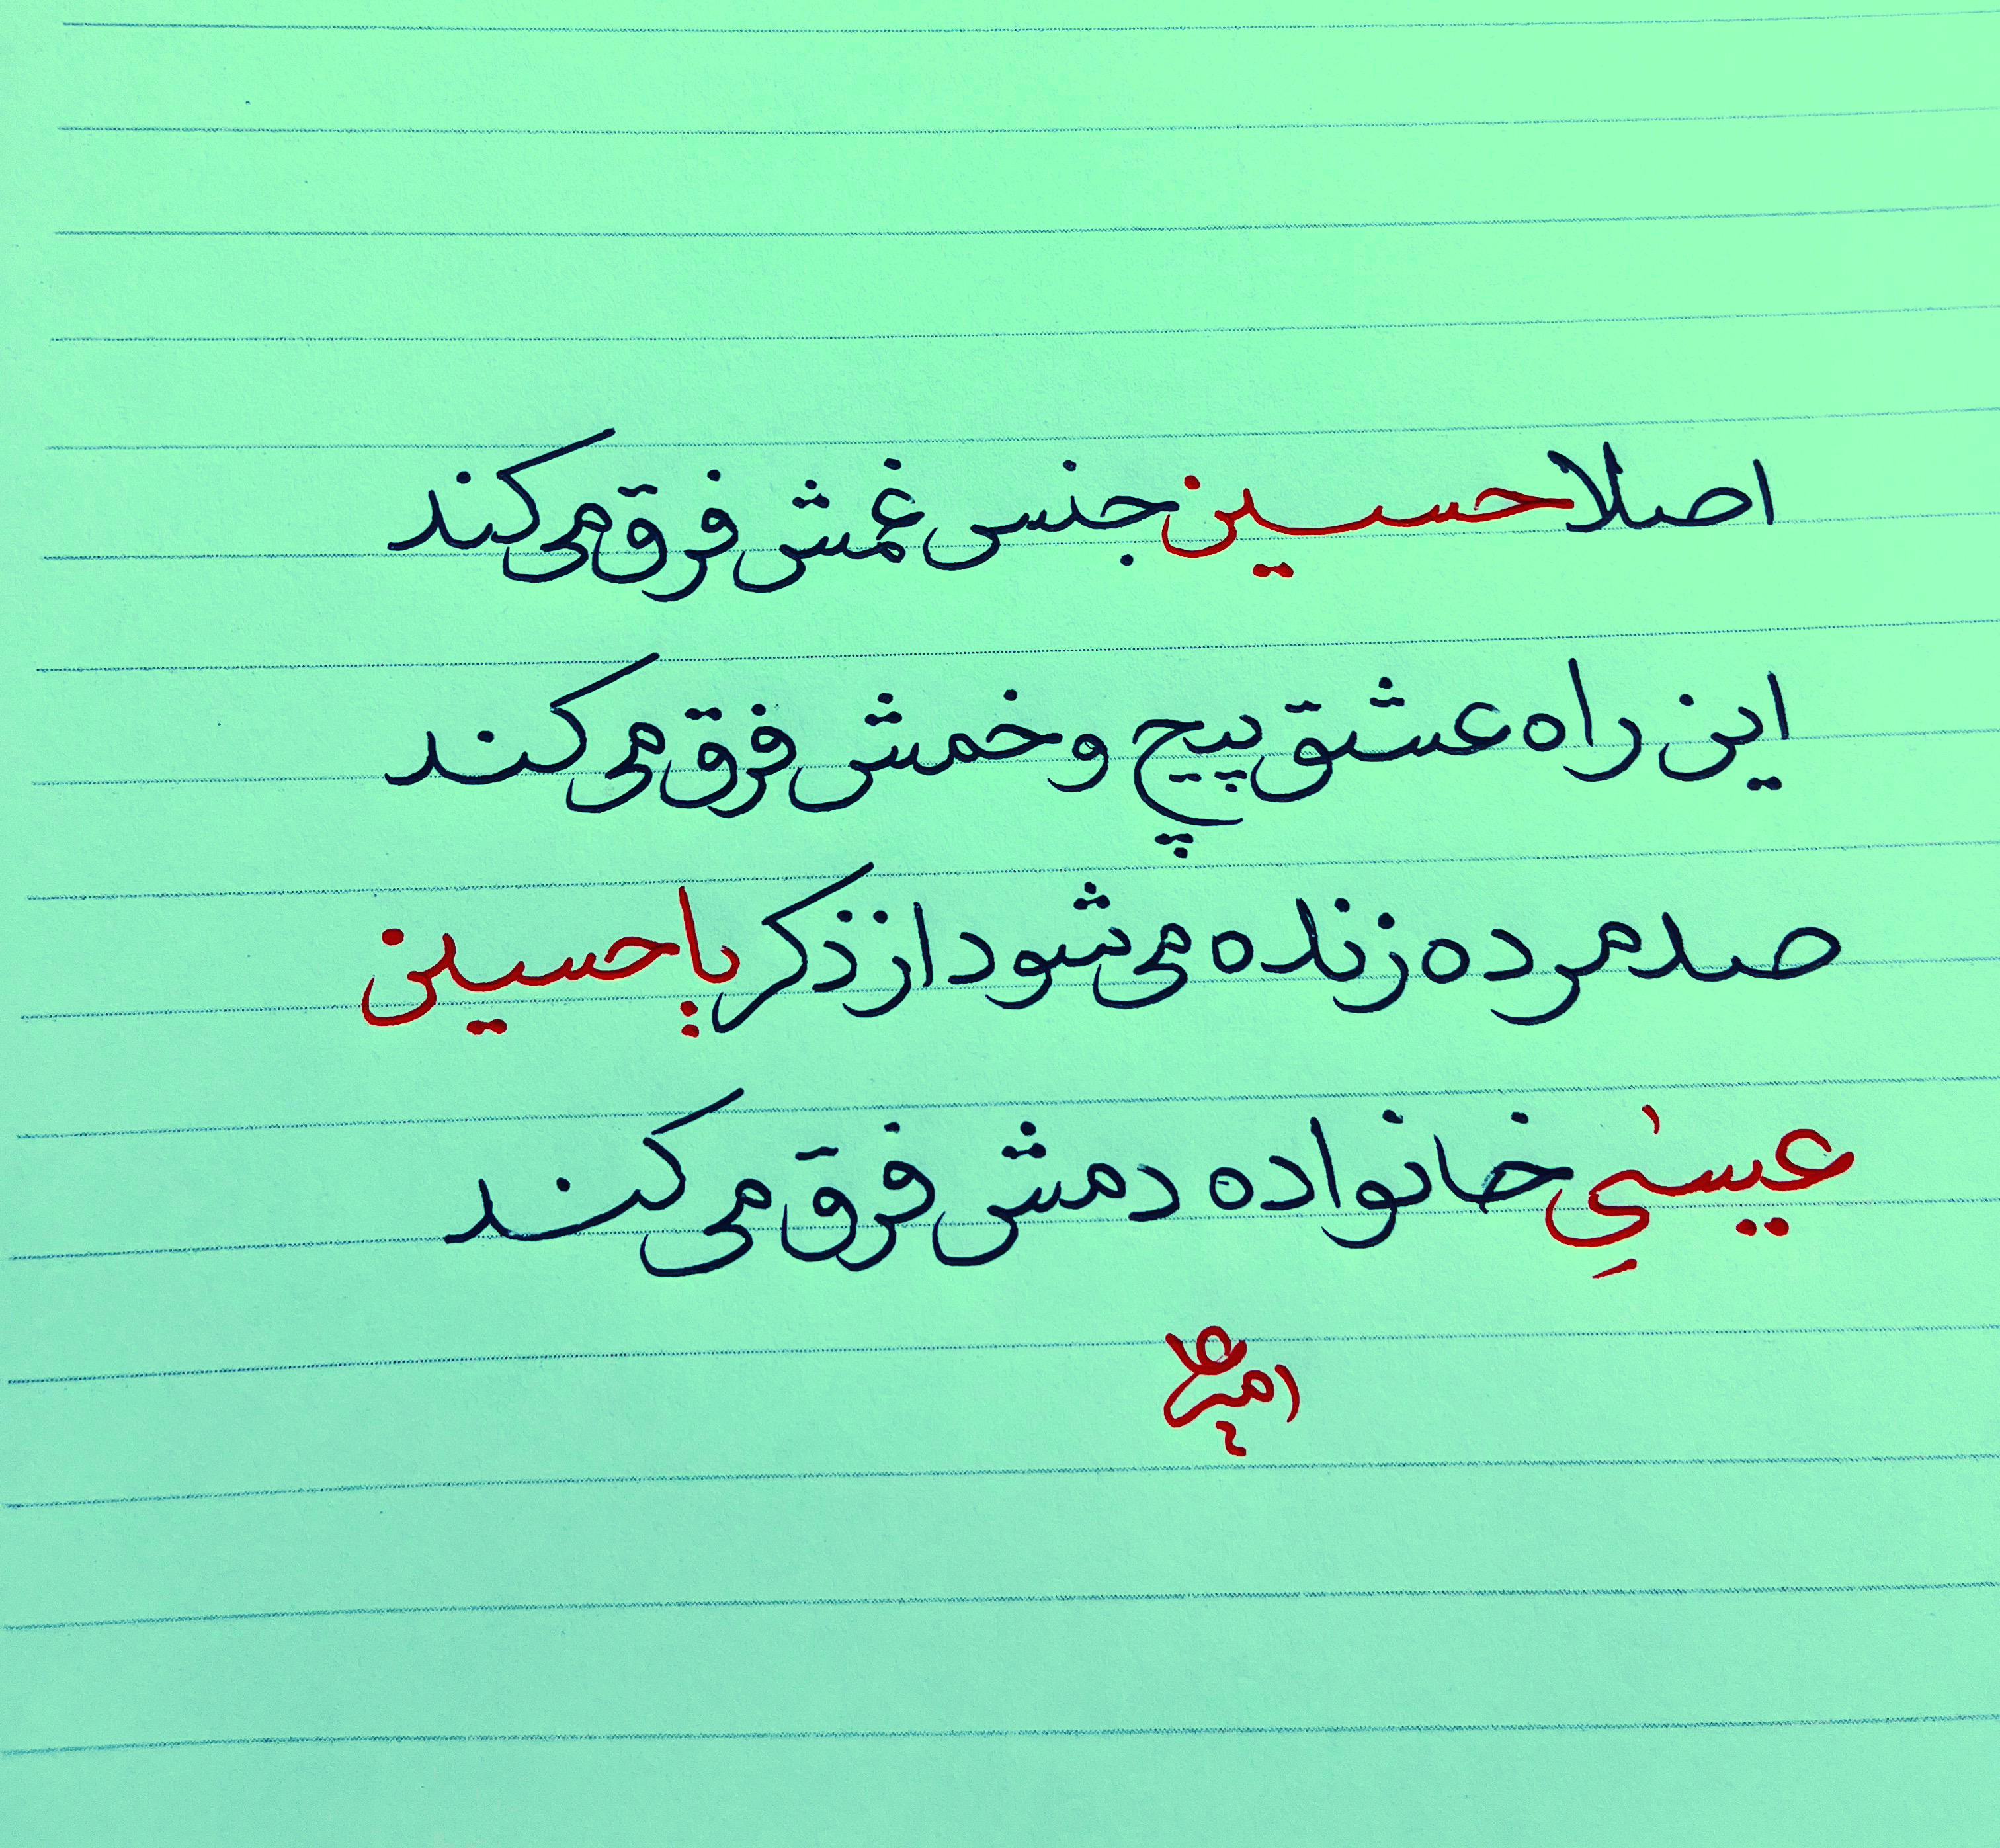 اصلا حسین جنس غمش فرق می کند
این راه عشق پیچ و خمش فرق می کند
صد مرده زنده می شود از ذکر یا حسین
عیسٰیِ خانواده دمش فرق می کند